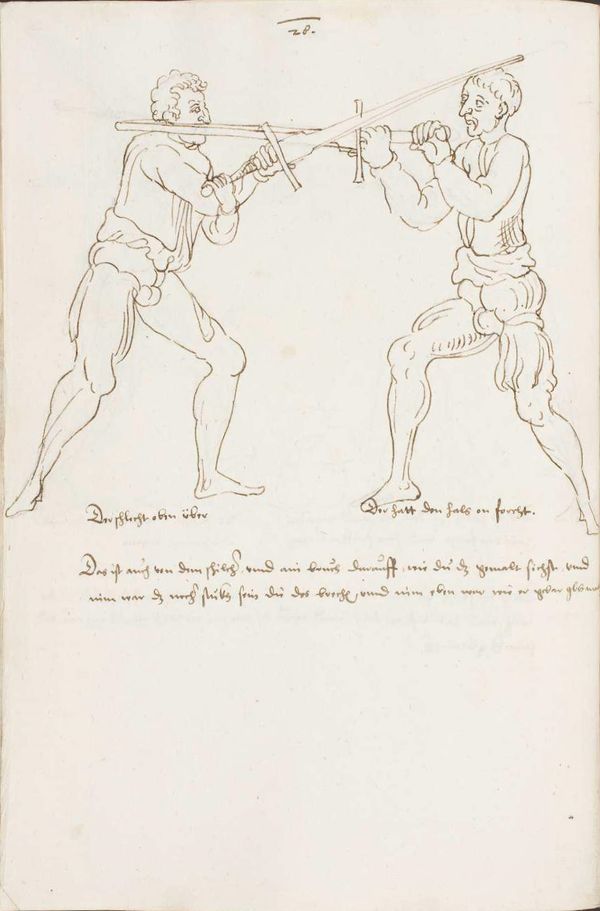 28.
Der schlecht oben über
Der hatt den hals on forcht.
Das ist auch von dem schilch, vnnd ain bruch darauff, wie du dz gemalt sichst, vnnd
nim war dz nechst stuckh sein du des brechst vnnd nim eben war wie er gebar